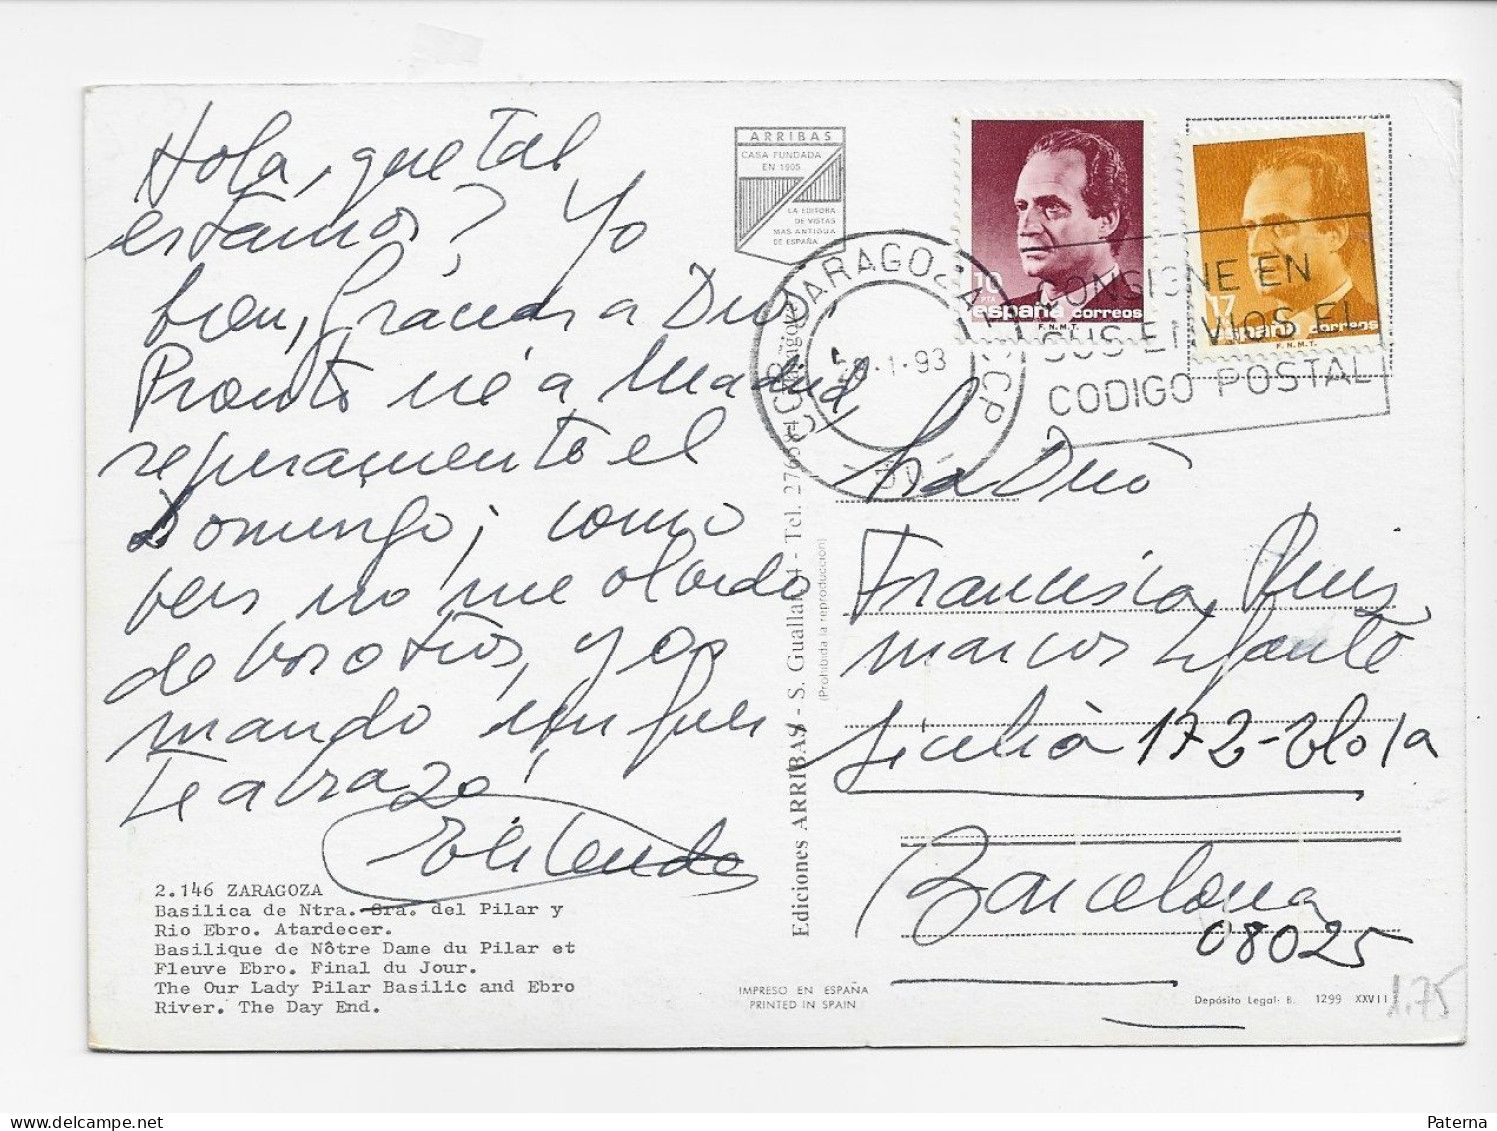 Hola, que tal
estamos? Yo
bien, Gracias a Dios.
Pronto iré a Madrid,
seguramente el
Domingo; como
veis no me olvido
de vosotros, y os
mando un fuer
te abrazo!
2.146 ZARAGOZA
Basilica de Ntra. Sra. del Pilar y
Rio Ebro. Atardecer.
Basilique de Nôtre Dame du Pilar et
Fleuve Ebro. Final du Jour.
The Our Lady Pilar Basilic and Ebro
River. The Day End.
ARRIBAS
CASA FUNDADA
EN 1905
LA EDITORA
DE VISTAS
MAS ANTIGUA
DE ESPAÑA
Ediciones ARRIBAS - S. Guallar, 4 - Tel. Zaragoza
(Prohibida la reproducción)
IMPRESO EN ESPAÑA
PRINTED IN SPAIN
10
PTA
españa correos
F.N.M.T.
17
españa correos
F.N.M.T.
ZARAGOZA
1-93
CONSIGNE EN
SUS ENVIOS EL
CODIGO POSTAL
Francisca Ruis
Sicilia 172
Barcelona
08025
Depósito Legal: B. 1299 XXVII
1.75
Paterna